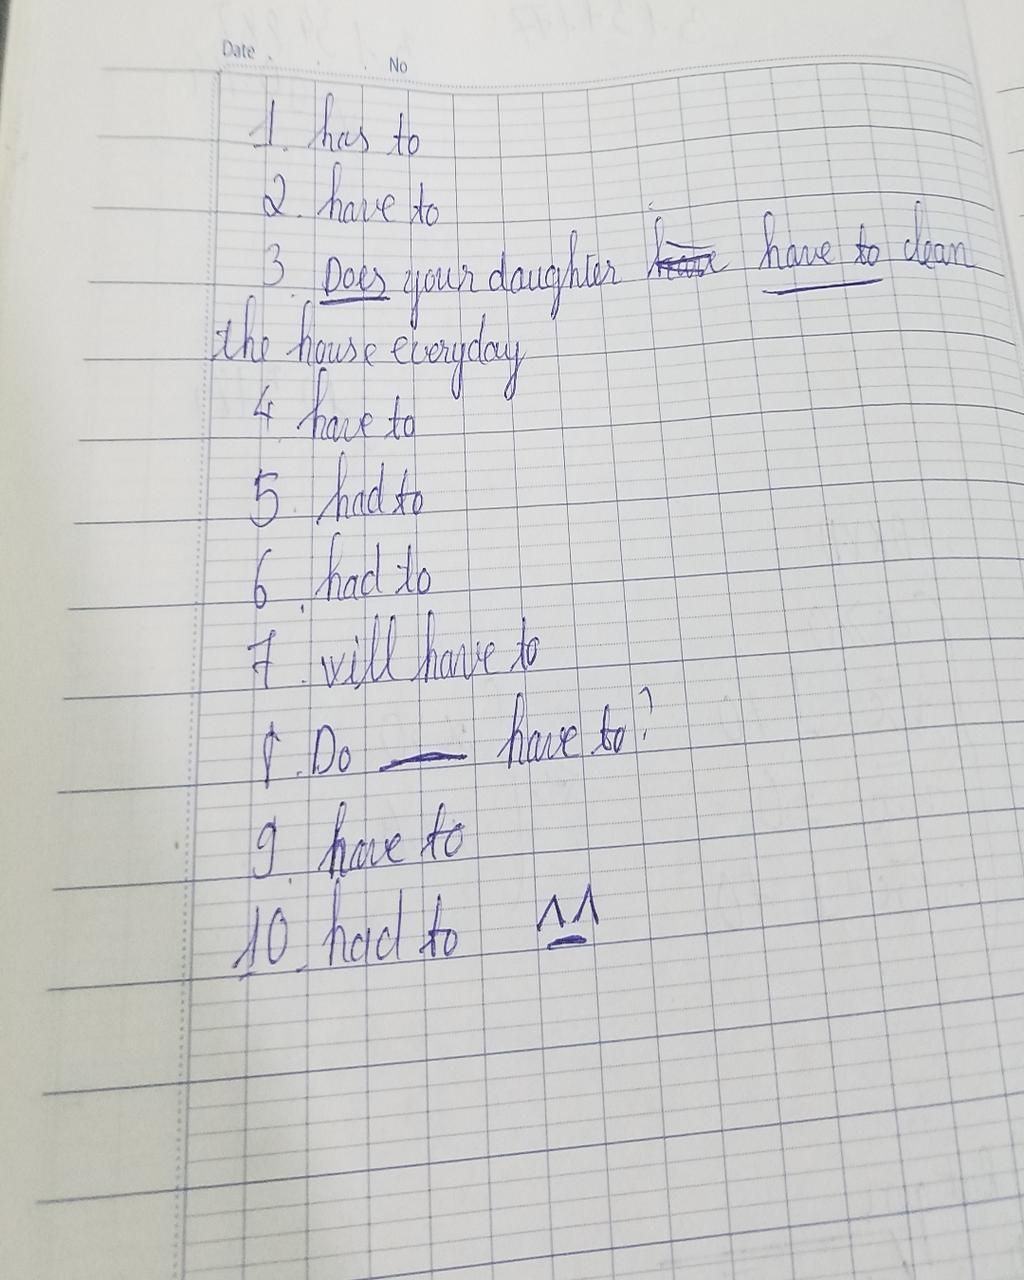 Date . . . No
1. has to
2. have to
3. Does your daughter have to clean
the house everyday
4 have to
5. had to
6. had to
7. will have to
8. Do ___ have to?
9. have to
10. had to ^_^